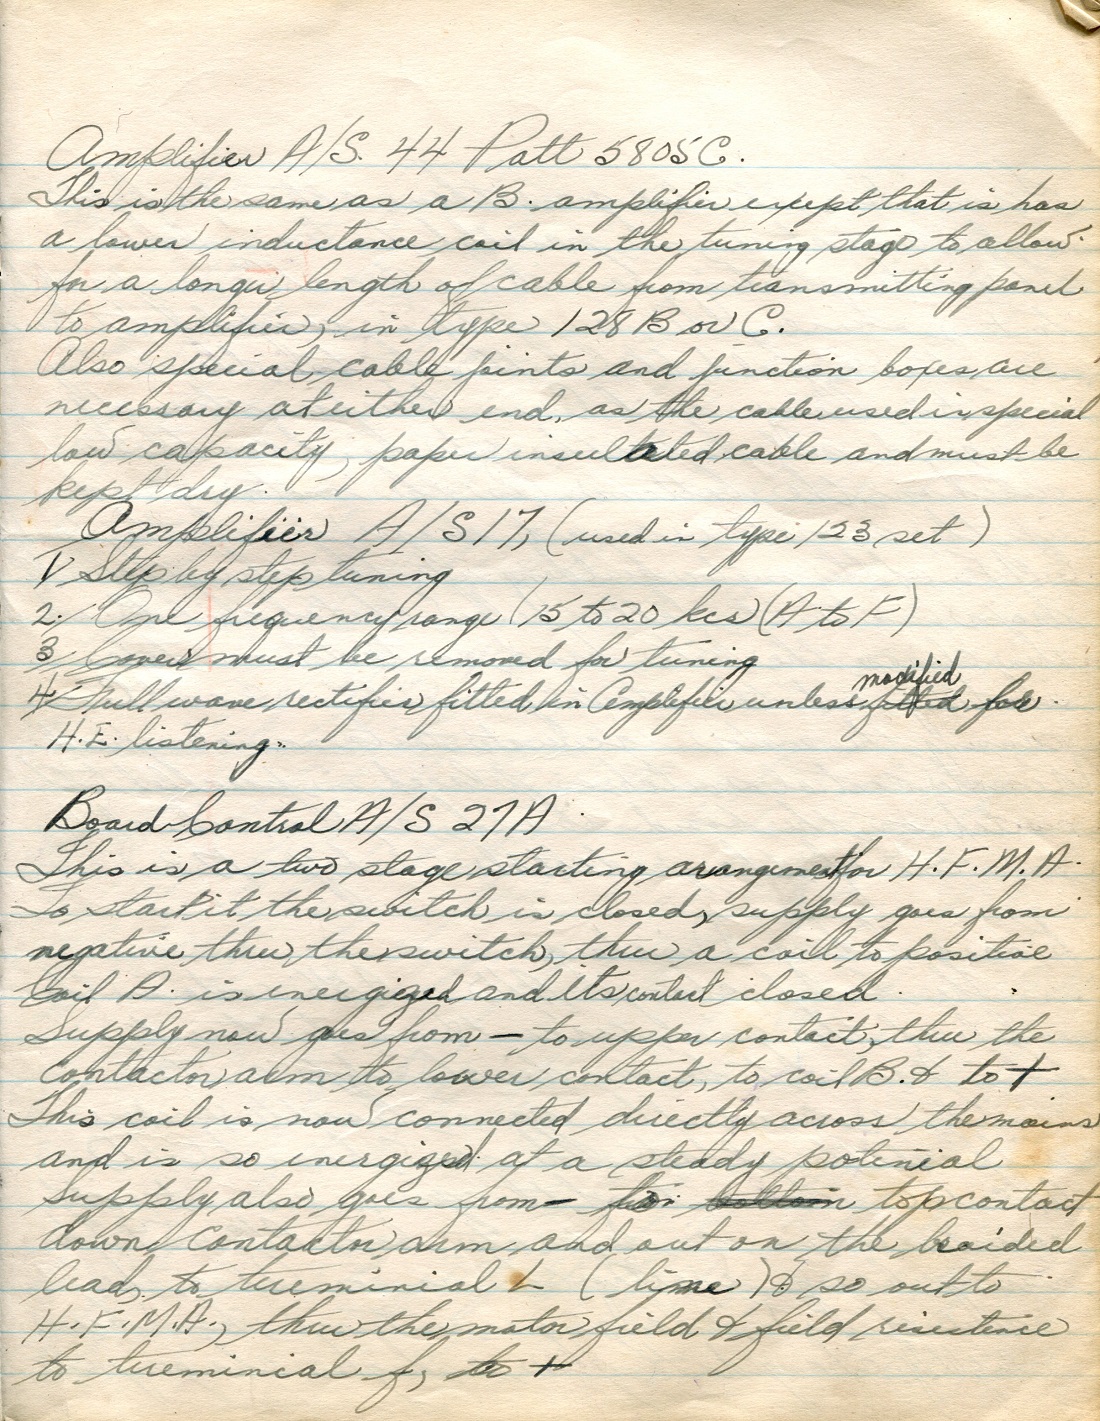 Amplifier A/S. 44 Patt 5805C.
This is the same as a B. amplifier except that is has
a lower inductance coil in the tuning stage to allow
for a longer length of cable from transmitting panel
to amplifier, in type 128 B or C.
Also special cable joints and junction boxes are
necessary at either end, as the cable used is special
low capacity, paper insulated cable and must be
kept dry.
Amplifier A/S 17, (used in type 123 set)
1/ Step by step tuning
2. One frequency range (15 to 20 kcs (A to F)
3 Cover must be removed for tuning
modified
4 Full wave rectifier fitted in Amplifier unless fitted for
H.E. listening.
Board Control A/S 27A
This is a two stage starting arrangement for H.F.M.A.
To start it the switch is closed, supply goes from
negative thru the switch, thru a coil to positive
Coil A. is energized and its contact closed.
Supply now goes from – to upper contact, thru the
contactor arm to lower contact, to coil B. & to +
This coil is now connected directly across the mains
and is so energized at a steady potenial
Supply also goes from – bottom top contact
down contactor arm and out on the braided
lead, to tereminial L (line) & so out to
H.F.M.A., thru the motor field & field resistence
to tereminial f, to +